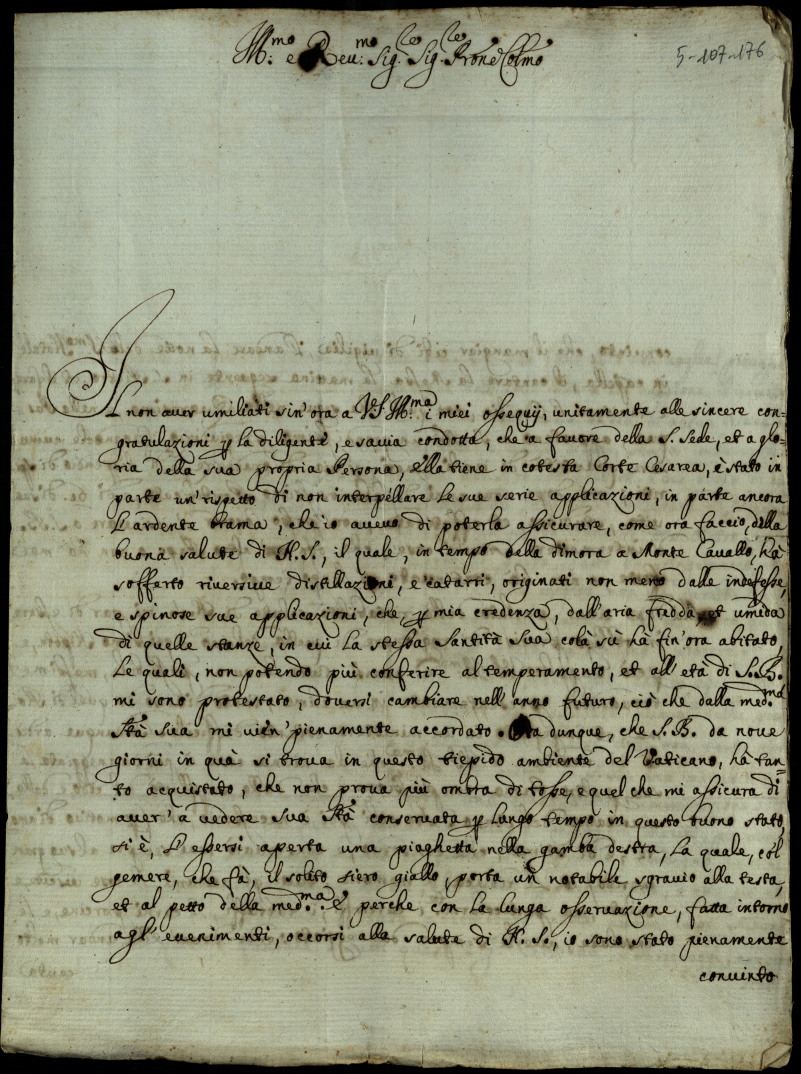 Ill.mo e Reu.mo Sig.re Sig.re Prõne Colmo
5-107-176
Il non auer umiliati sin'ora a V.S. Ill.ma i miei ossequij, unitamente alle sincere con-
gratulazioni p la diligente, e sauia condotta, che a fauore della S. Sede, et a glo-
ria della sua propria Persona, Ella tiene in cotesta Corte Cesarea, è stato in
parte un rispetto di non interpellare le sue serie applicazioni, in parte ancora
L'ardente brama, che io aueuo di poterla assicurare, come ora faccio, della
buona salute di N.S., il quale, in tempo della dimora a Monte Cauallo, hà
sofferto riversiue distillazioni, e catarri, originati non meno dalle indefesse,
e spinose sue applicazioni, che, p mia credenza, dall'aria fredda, et umida
di quelle stanze, in cui la stessa Santità Sua colà sù hà fin'ora abitato,
Le quali, non potendo più conferire al temperamento, et all'età di S.B.
mi sono protestato, douersi cambiare nell'anno futuro, ciò che dalla med.ma
Stà Sua mi uien' pienamente accordato. Ora dunque, che S.B. da noue
giorni in quà si troua in questo tiepido ambiente del Vaticano, hà tan=
to acquistato, che non proua più ombra di tosse, e quel che mi assicura di
auer' a uedere Sua Stà conseruata p lungo tempo in questo buono stato,
si è, L'essersi aperta una piaghetta nella gamba destra, La quale, col
gemere, che fà, il solito siero giallo, porta un notabile sgrauio alla testa,
et al petto della med.ma. E perche con la lunga osseruazione, fatta intorno
agl'euenimenti, occorsi alla salute di N.S., io sono stato pienamente
conuinto